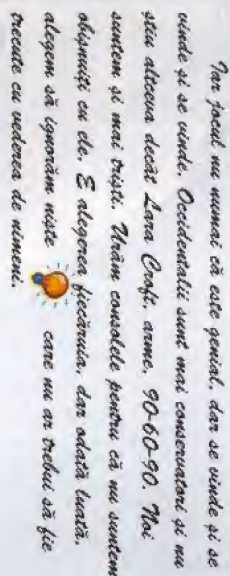 Iar jocul nu numai că este genial, dar se vinde și se
vinde și se vinde. Occidentalii sunt mai conservatori și nu
știu altceva decât Lara Croft, arme, 90-60-90. Noi
suntem și mai triști. Urâm consolele pentru că nu suntem
obișnuiți cu ele. E alegerea fiecăruia, dar odată luată,
alegem să ignorăm niște care nu ar trebui să fie
trecute cu vederea de nimeni.